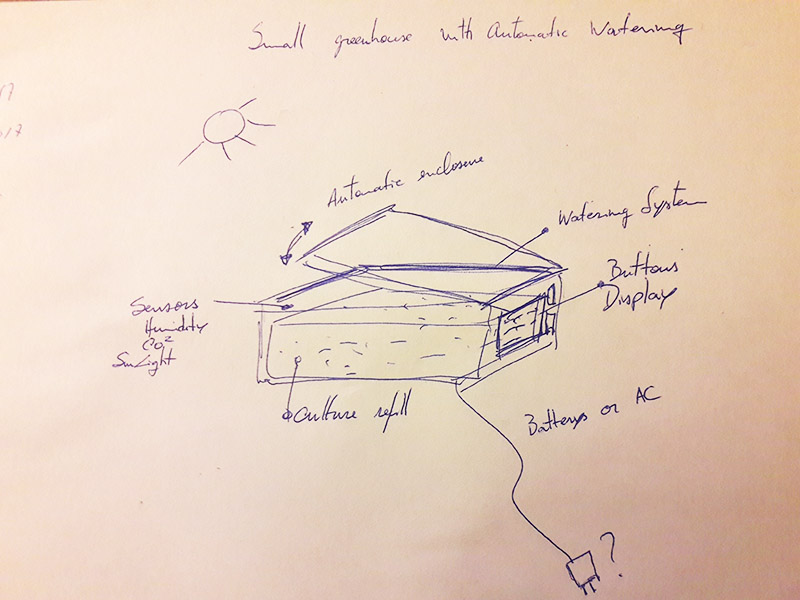 Small greenhouse with Automatic Watering
Automatic enclosure
Watering System
Buttons
Display
Sensors
Humidity
CO²
SunLight
Culture refill
Batterys or AC
?